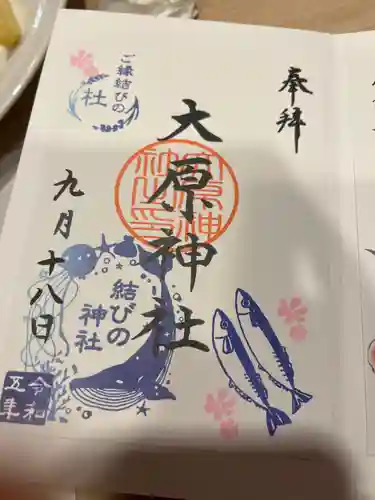 奉拝
大原神社
ご縁結びの
社
結びの
神社
九月十八日
令和
五年